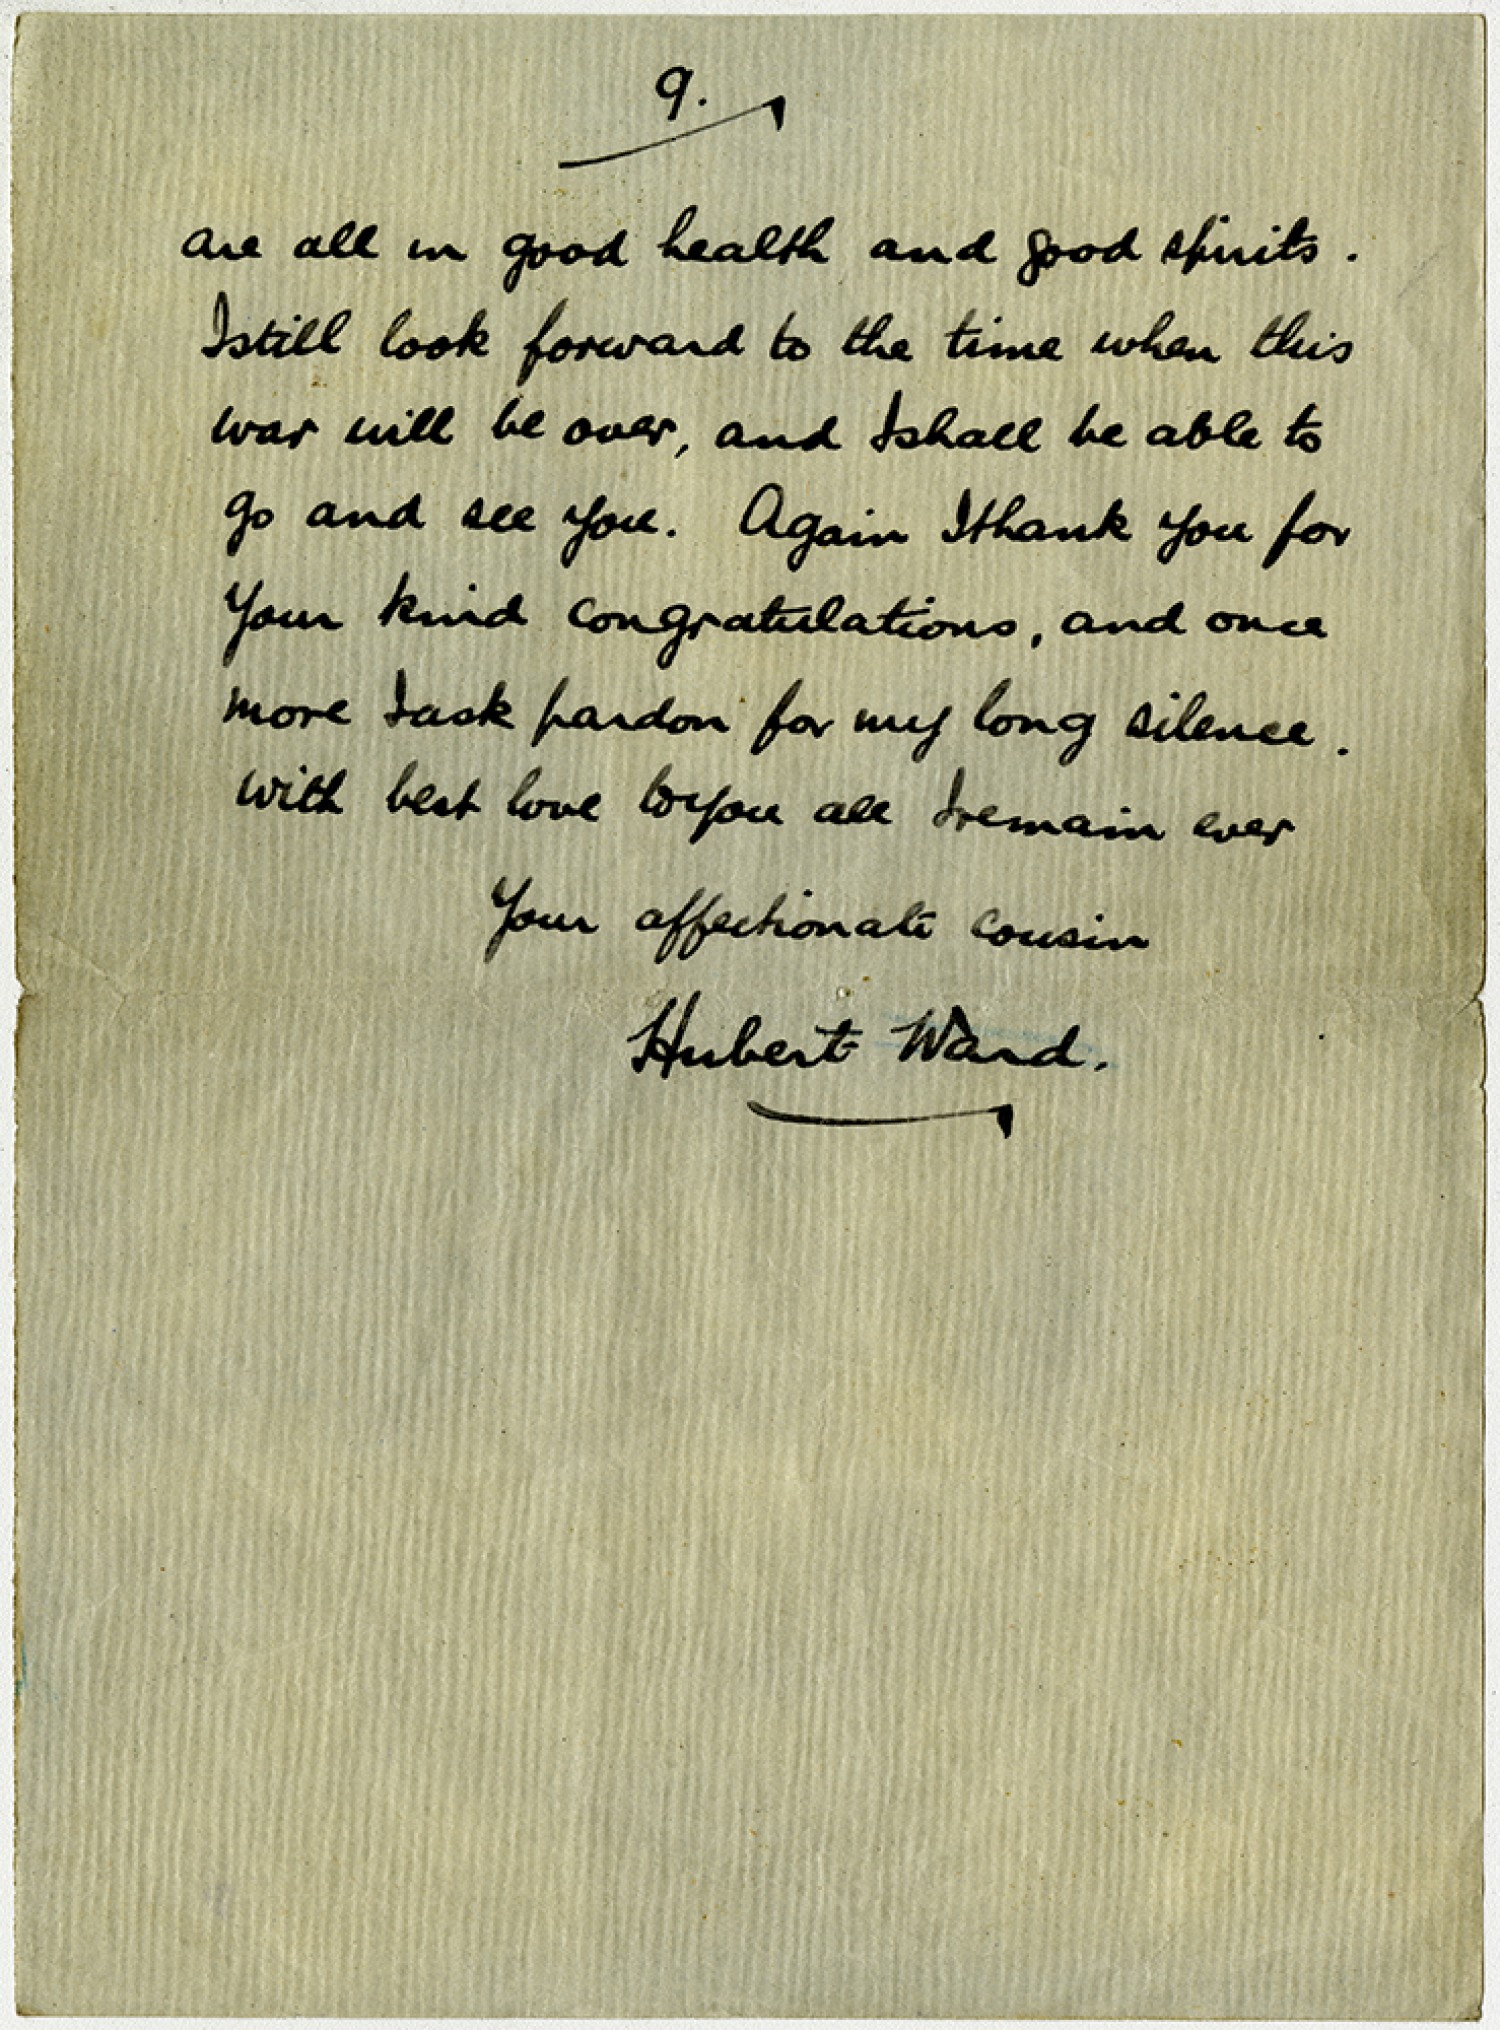 9.
are all in good health and good spirits.
I still look forward to the time when this
war will be over, and I shall be able to
go and see you. Again I thank you for
your kind congratulations, and once
more I ask pardon for my long silence.
With best love to you all I remain ever
Your affectionate cousin
Hubert Ward.